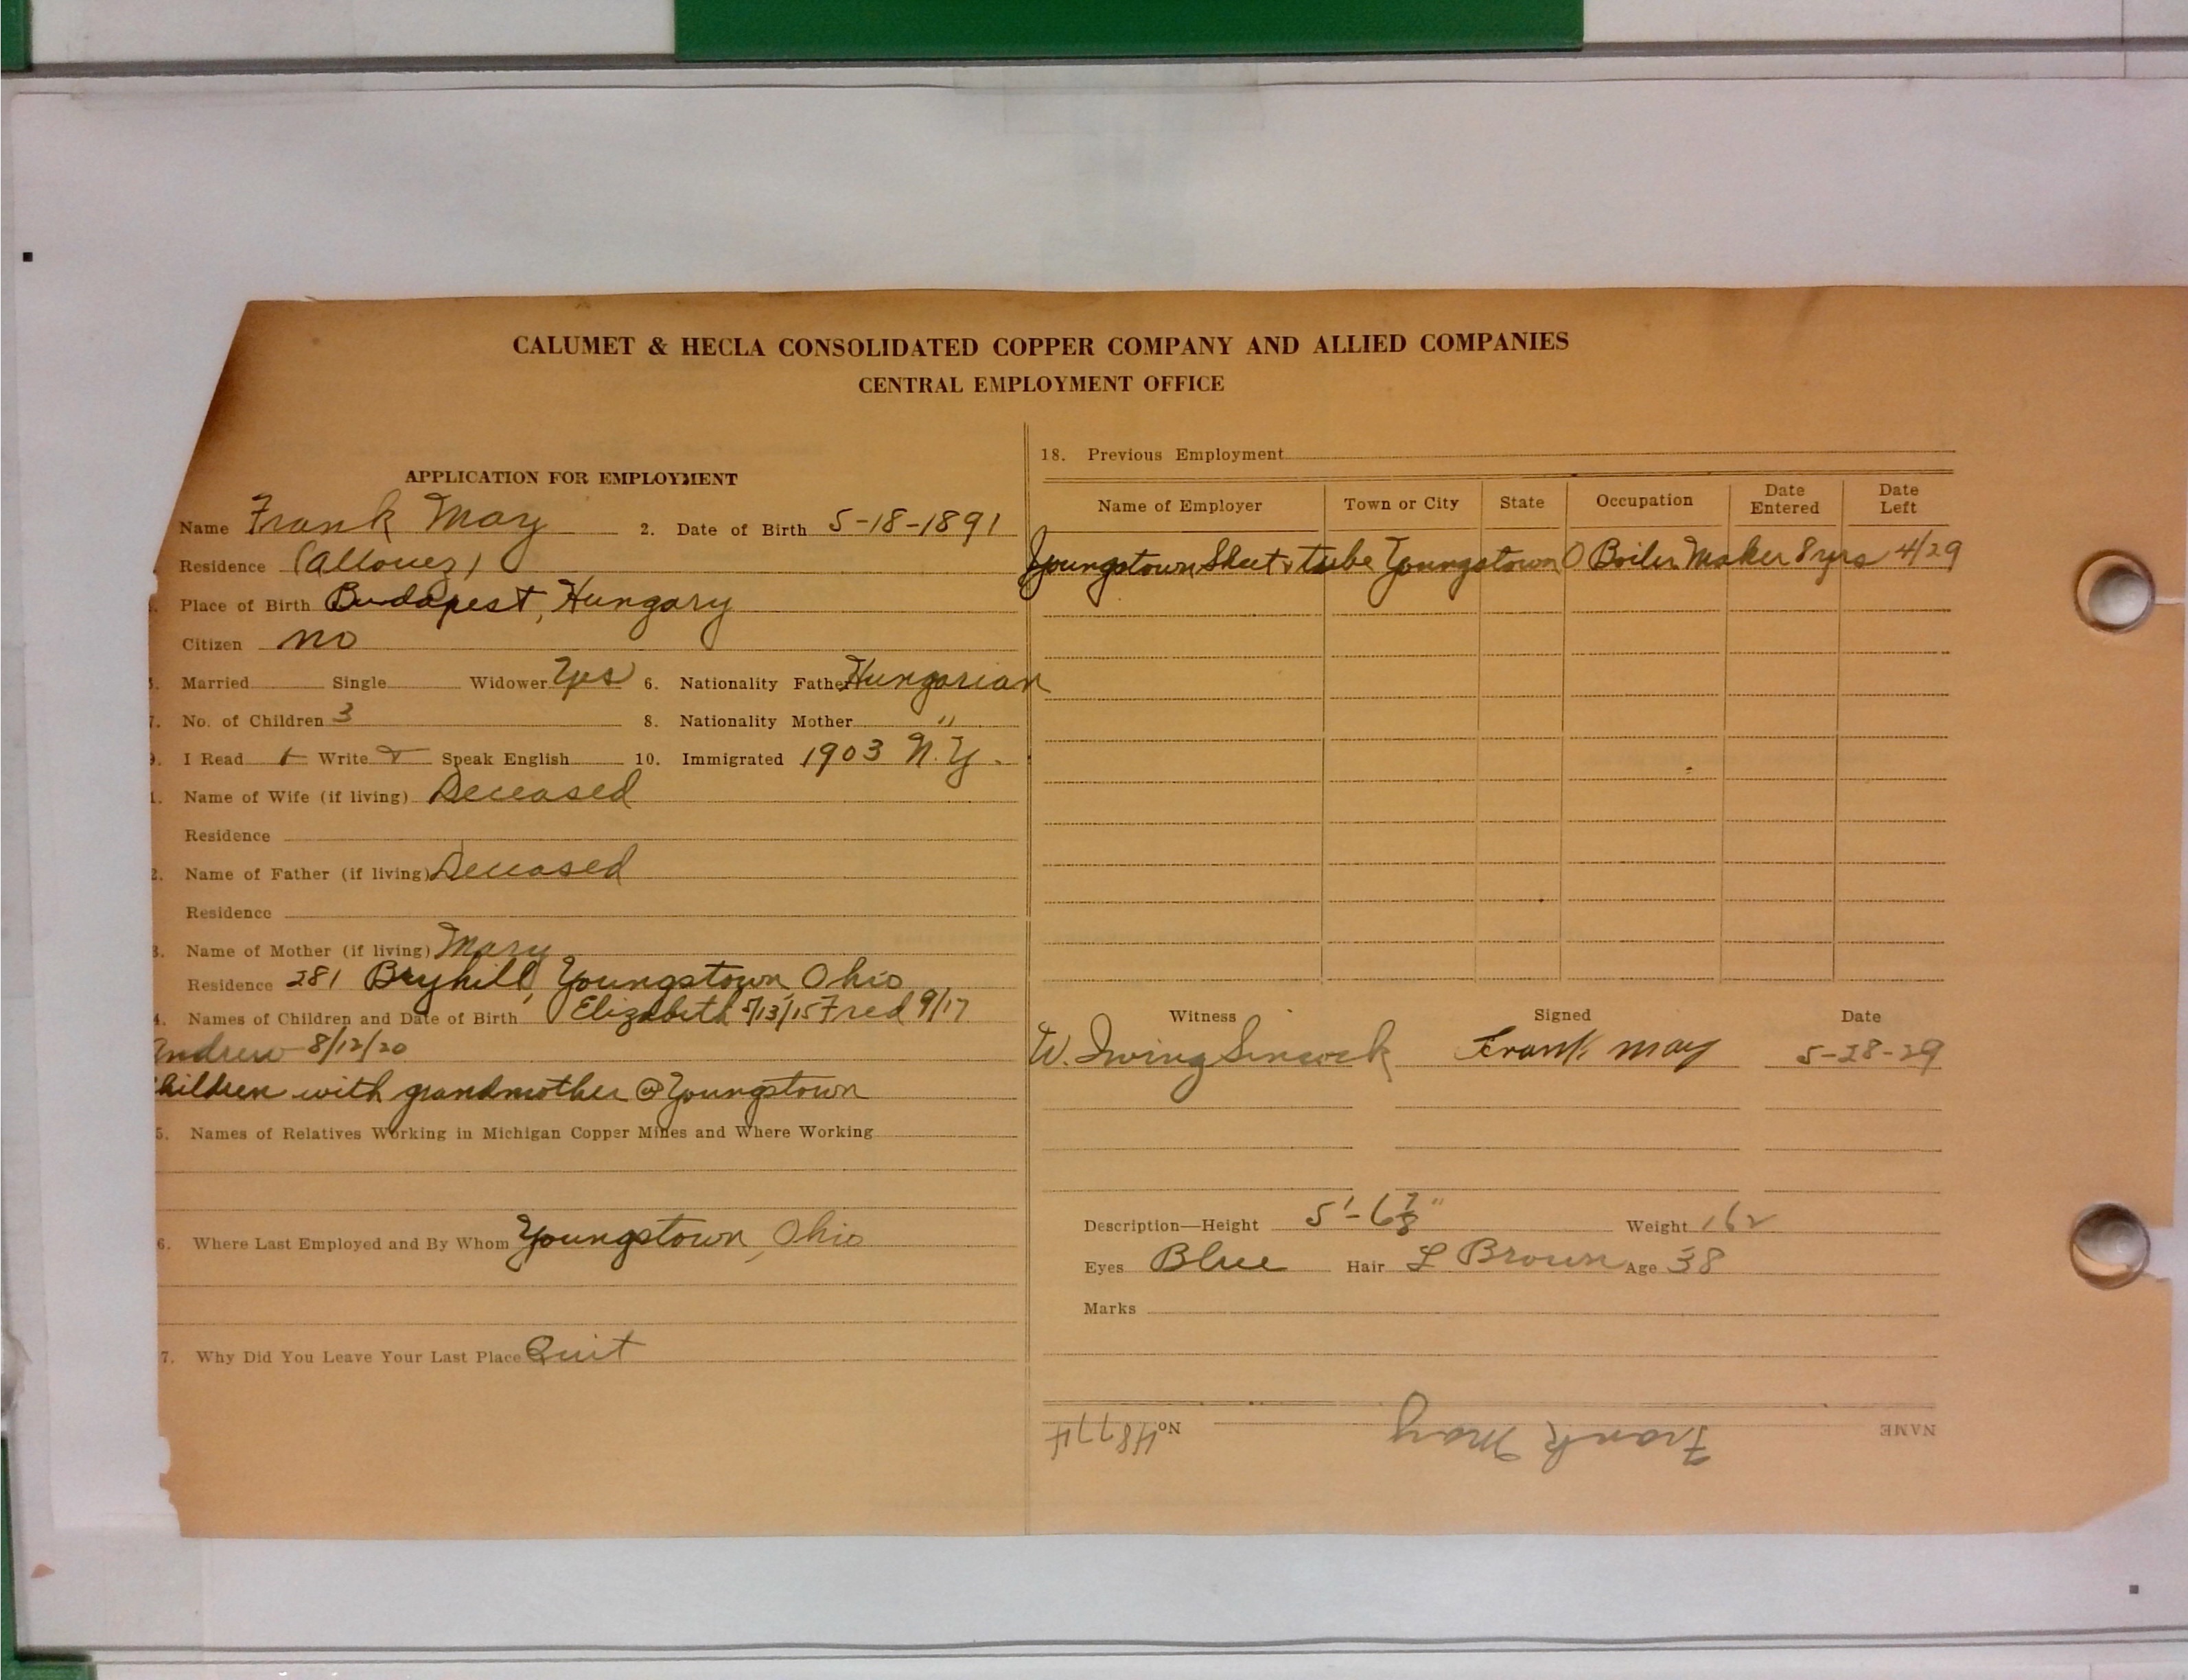 CALUMET & HECLA CONSOLIDATED COPPER COMPANY AND ALLIED COMPANIES
CENTRAL EMPLOYMENT OFFICE
APPLICATION FOR EMPLOYMENT
Name Frank May 2. Date of Birth 5-18-1891
Residence (Allouez)
Place of Birth Budapest, Hungary
Citizen no
Married Single Widower Yes 6. Nationality Father Hungarian
7. No. of Children 3 8. Nationality Mother "
I Read Write Speak English 10. Immigrated 1903 N.Y.
Name of Wife (if living) Deceased
Residence
2. Name of Father (if living) Deceased
Residence
3. Name of Mother (if living) Mary
Residence 281 Youngstown, Ohio
4. Names of Children and Date of Birth Elizabeth 5/13/15 Fred 9/17
Andrew 8/12/20
Children with grandmother @ Youngstown
5. Names of Relatives Working in Michigan Copper Mines and Where Working
6. Where Last Employed and By Whom Youngstown, Ohio
7. Why Did You Leave Your Last Place Quit
18. Previous Employment
Name of Employer Town or City State Occupation Date Entered Date Left
Youngstown Sheet & tube Youngstown O Boiler Maker 8 yrs 4/29
Witness Signed Date
W. Irving Frank May 5-28-29
Description—Height 5'-6 7/8" Weight 162
Eyes Blue Hair L Brown Age 38
Marks
NAME Frank May No 48774